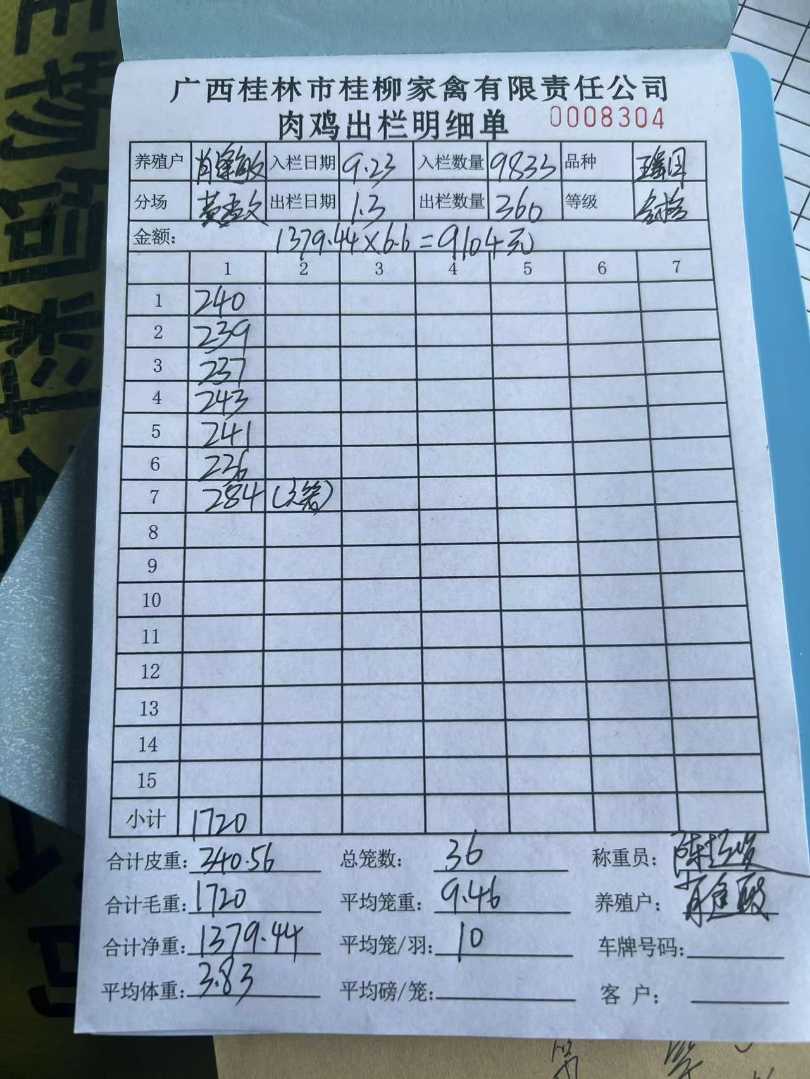 广西桂林市桂柳家禽有限责任公司
肉鸡出栏明细单 0008304
养殖户 入栏日期 9.23 入栏数量 9833 品种
分场 出栏日期 1.3 出栏数量 360 等级
金额: 1379.44×6.6=9104元
1 2 3 4 5 6 7
1 240
2 239
3 237
4 243
5 241
6 236
7 284
8
9
10
11
12
13
14
15
小计 1720
合计皮重: 340.56 总笼数: 36 称重员:
合计毛重: 1720 平均笼重: 9.46 养殖户:
合计净重: 1379.44 平均笼/羽: 10 车牌号码:
平均体重: 3.83 平均磅/笼: 客 户: